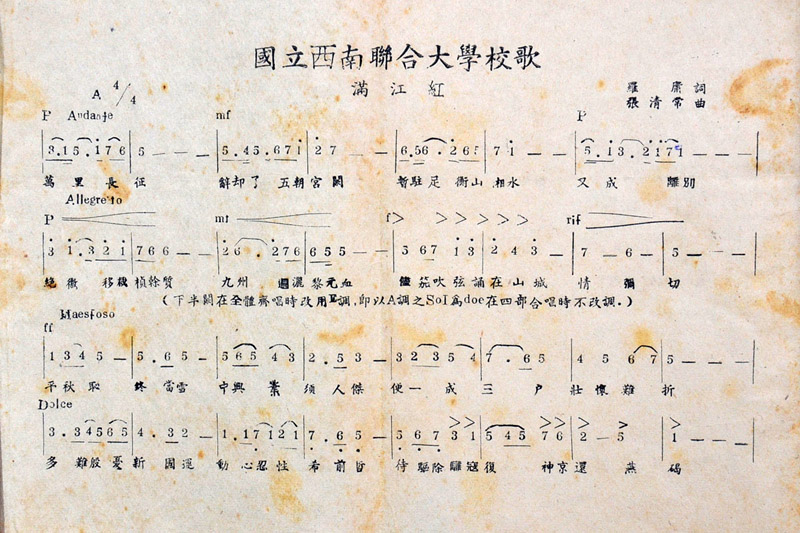 國立西南聯合大學校歌
滿江紅
A 4/4
羅庸詞
張清常曲
P Andante mf P
3.15.176 5 — — — 5.45.671 27 — — 6.56.265 71 — — 5.13.2171 — — —
萬里長征 辭却了 五朝宮闕 暫駐足 衡山湘水 又成 離別
Allegreto
P mf f> > > > > rif
3 1.321 766 — — 26.276 655 — — 567 13 243 — 7 — 6 — 5 — — —
絕徼 移栽楨榦質 九州 遍灑黎元血 儘笳吹弦誦在山城 情彌切
(下半闋在全體齊唱時改用E調,即以A調之Sol為doe在四部合唱時不改調.)
Maestoso
ff
1345 — 5.65 — 565 43 2.53 — 323 54 7.65 — 45 67 5 — — —
千秋恥 終當雪 中興業 須人傑 便一成三戶 壯懷難折
Dolce
3.34565 4.32 — 1.17121 7.65 — 567 31 545 76 2 — 5 1 — — —
多難殷憂新國運 動心忍性希前哲 待驅除雠寇復 神京還 燕碣